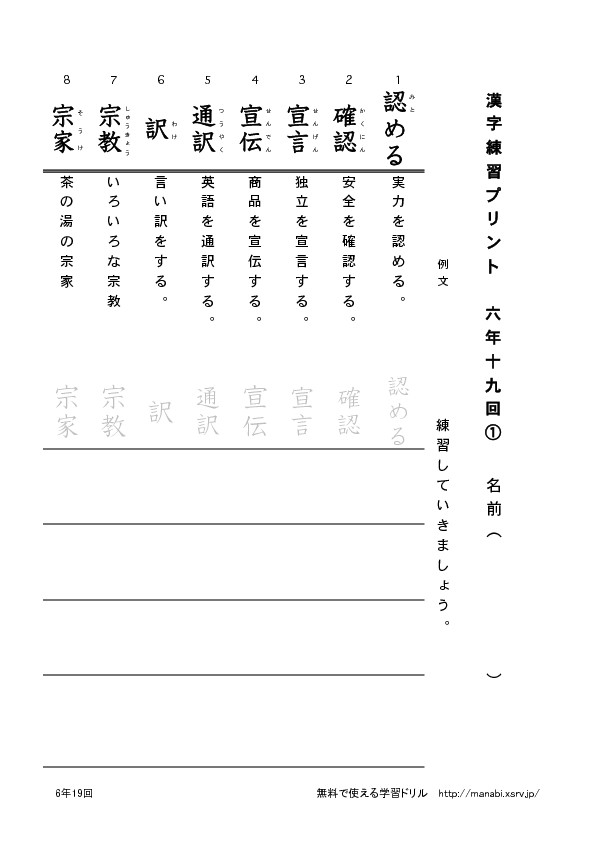 漢字練習プリント 六年十九回① 名前（ ）
例文
練習していきましょう。
1
認める
みと
実力を認める。
認める
2
確認
かくにん
安全を確認する。
確認
3
宣言
せんげん
独立を宣言する。
宣言
4
宣伝
せんでん
商品を宣伝する。
宣伝
5
通訳
つうやく
英語を通訳する。
通訳
6
訳
わけ
言い訳をする。
訳
7
宗教
しゅうきょう
いろいろな宗教
宗教
8
宗家
そうけ
茶の湯の宗家
宗家
6年19回
無料で使える学習ドリル http://manabi.xsrv.jp/